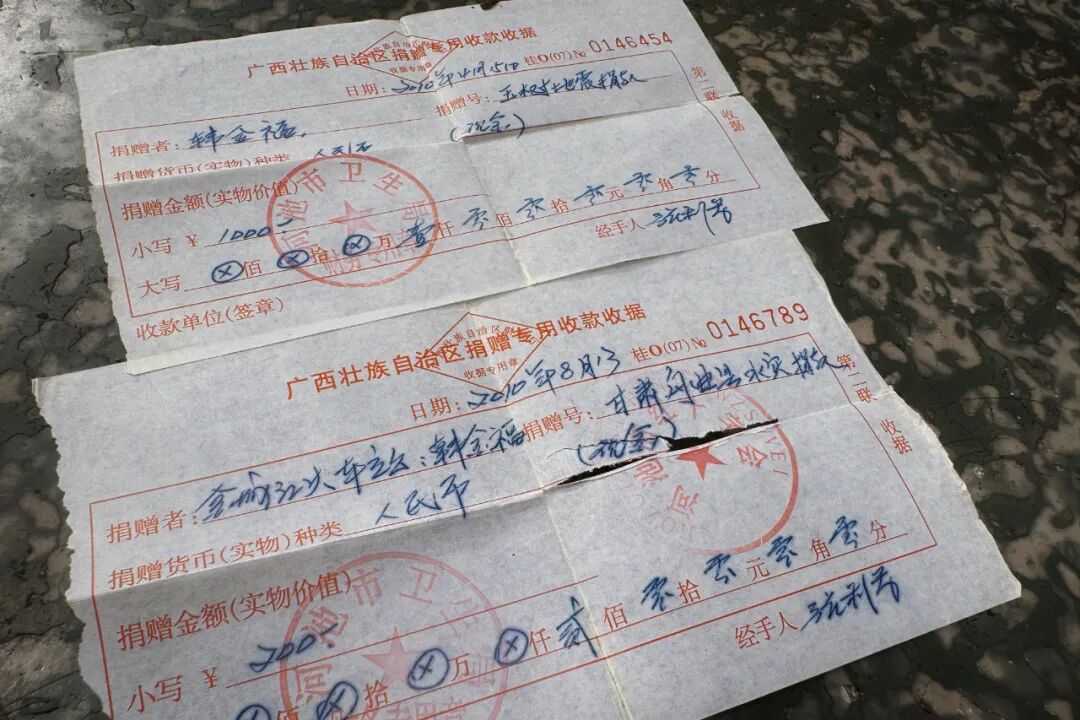 广西壮族自治区捐赠专用收款收据
收据专用章
日期：2010年4月15日 桂O(07)No 0146454
捐赠者：韩金福 捐赠号：玉树地震捐款
捐赠货币(实物)种类 人民币 (现金)
捐赠金额(实物价值)
小写 ¥ 1000
大写 ⊗佰⊗拾⊗万壹仟零佰零拾零元零角零分
收款单位(签章) 经手人
第二联 收据
河池市卫生局
财务专用章
广西壮族自治区捐赠专用收款收据
收据专用章
日期：2010年8月13 桂O(07)No 0146789
捐赠者：金城江火车站：韩金福 捐赠号：甘肃舟曲县水灾捐款
捐赠货币(实物)种类 人民币 (现金)
捐赠金额(实物价值)
小写 ¥ 200
佰⊗拾⊗万⊗仟贰佰零拾零元零角零分
经手人
第二联 收据
河池市卫生局